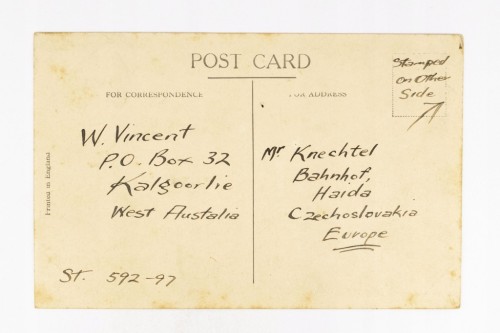 POST CARD
FOR CORRESPONDENCE
FOR ADDRESS
Stamped
on Other
Side
W. Vincent
P.O. Box 32
Kalgoorlie
West Austalia
St. 592-97
Mr Knechtel
Bahnhof,
Haida
Czechoslovakia
Europe
Printed in England